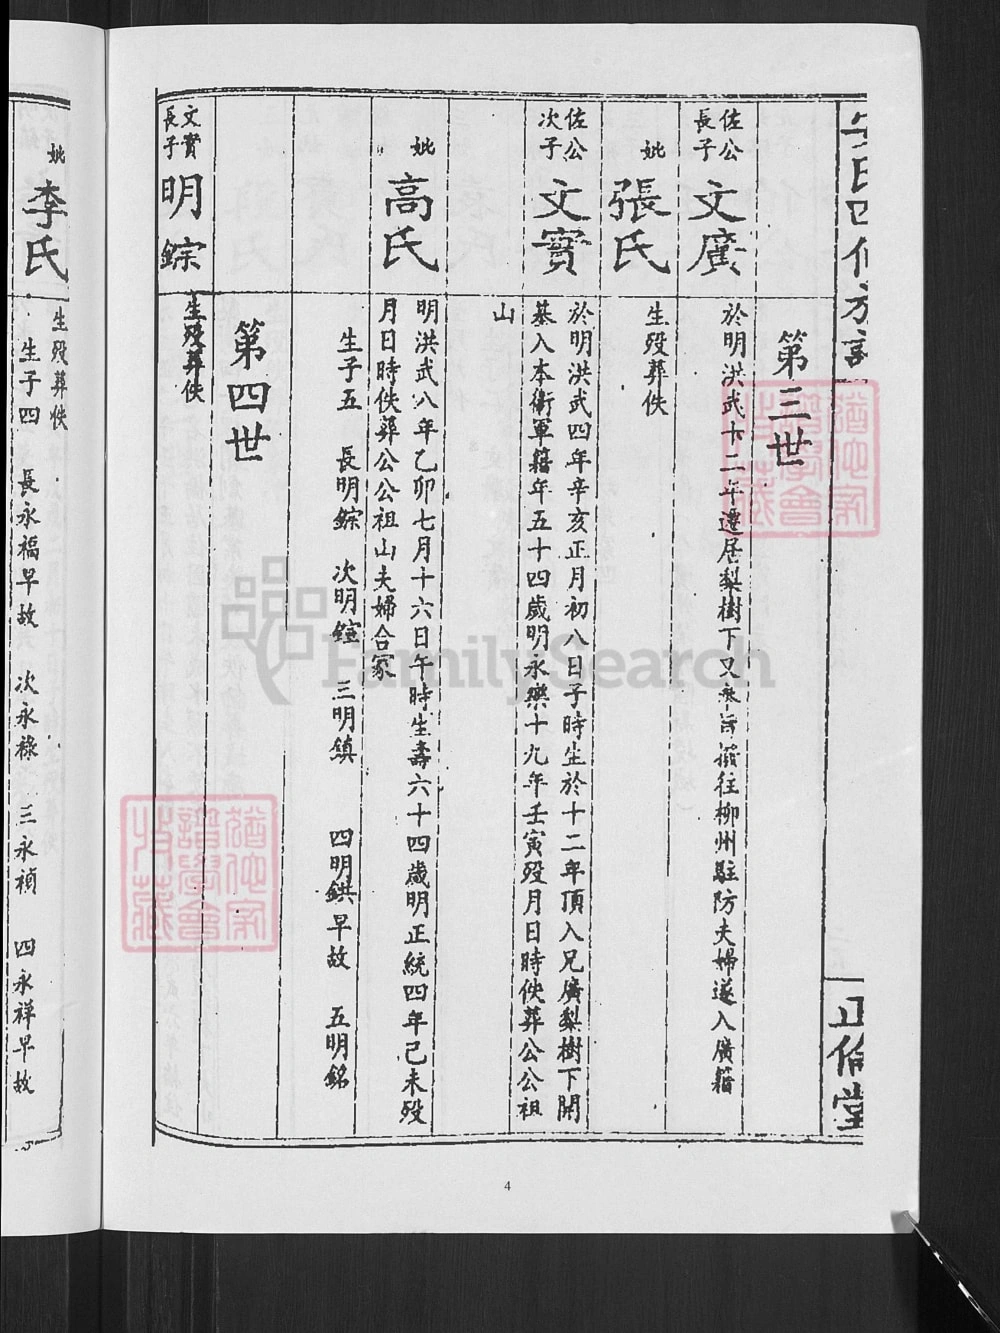 正倫堂
第三世
佐公
長子
文廣
於明洪武十二年遷居梨樹下又奉旨撥往柳州駐防夫婦遂入廣籍
妣
張氏
生殁葬佚
佐公
次子
文實
於明洪武四年辛亥正月初八日子時生於十二年頂入兄廣梨樹下開
基入本衛軍籍年五十四歲明永樂十九年壬寅殁月日時佚葬公公祖
山
妣
高氏
明洪武八年乙卯七月十六日午時生壽六十四歲明正統四年己未殁
月日時佚葬公公祖山夫婦合冢
生子五 長明錝 次明鍹 三明鎮 四明鉷早故 五明銘
第四世
文實
長子
明錝
生殁葬佚
妣
李氏
生殁葬佚
生子四 長永福早故 次永祿 三永禎 四永禪早故
4
FamilySearch
譜學會
收藏
譜學會
收藏